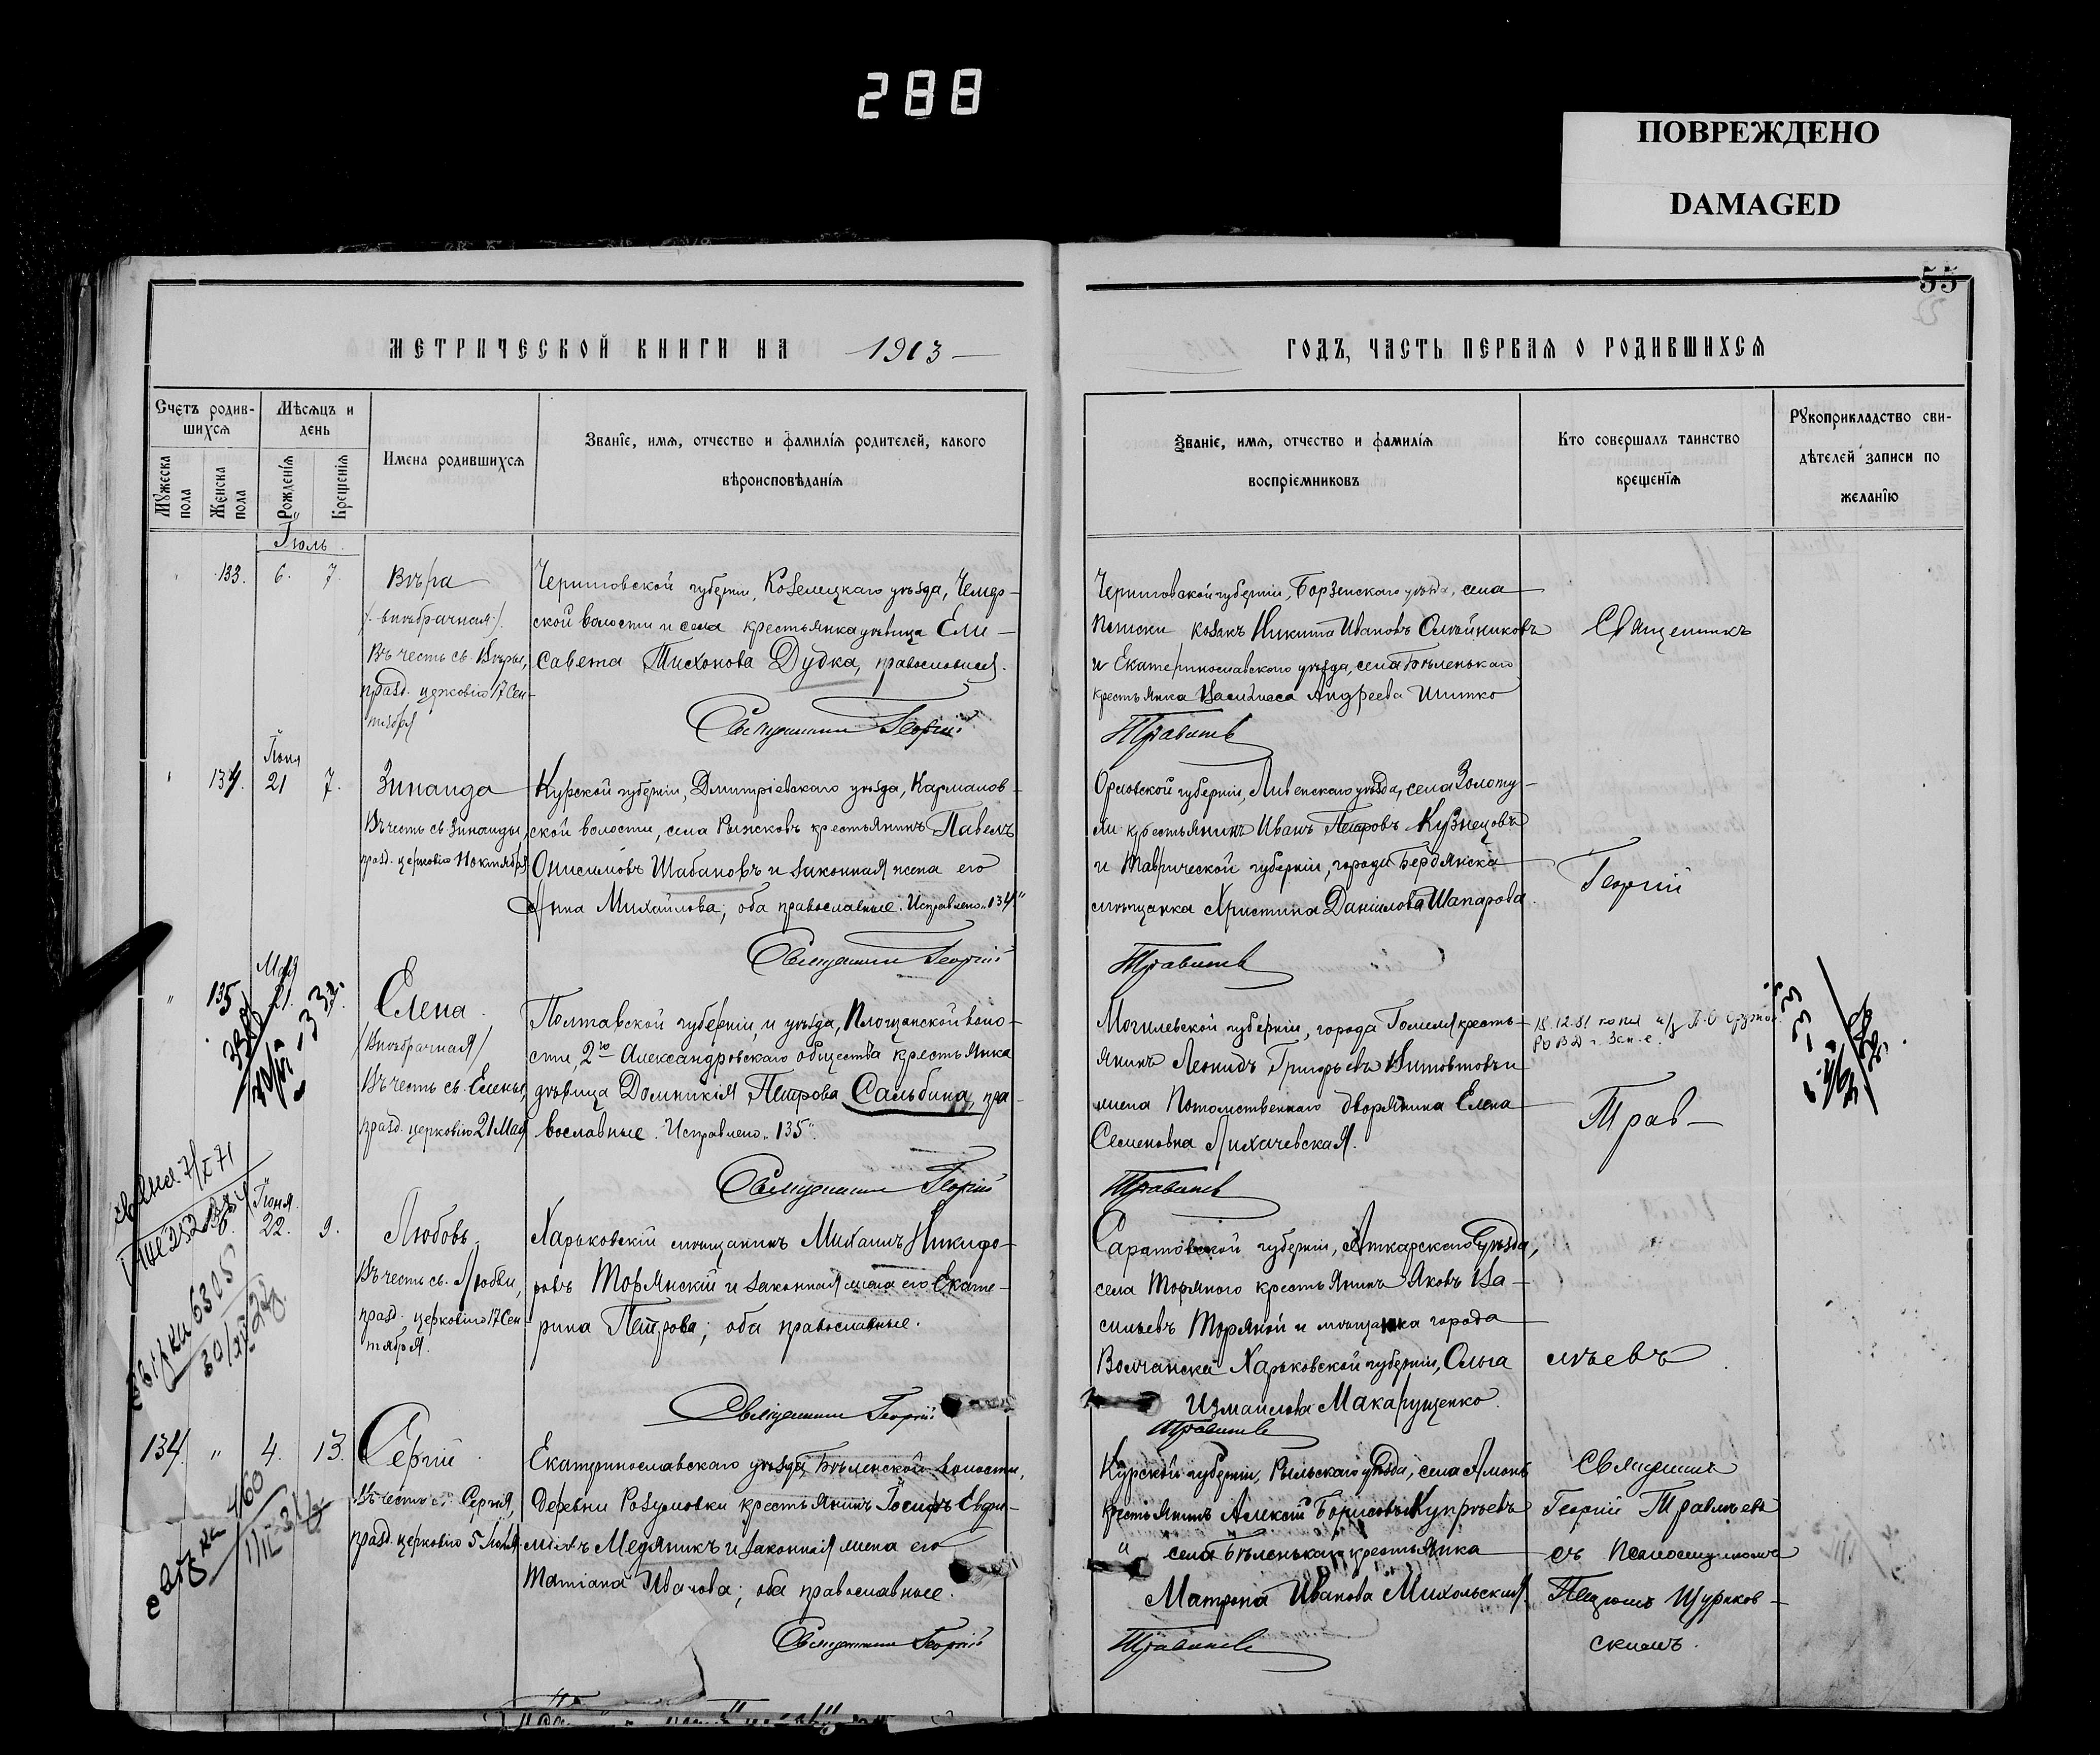 288
ПОВРЕЖДЕНО
DAMAGED
55
МЕТРИЧЕСКОЙ КНИГИ НА 1913
ГОДЪ, ЧАСТЬ ПЕРВАЯ О РОДИВШИХСЯ
Счетъ родив-
шихся
Мѣсяцъ и
день
Мужеска
пола
Женска
пола
Рожденія
Крещенія
Имена родившихся
Званіе, имя, отчество и фамилія родителей, какого
вѣроисповѣданія
Званіе, имя, отчество и фамилія
воспріемниковъ
Кто совершалъ таинство
крещенія
Рукоприкладство сви-
дѣтелей записи по
желанію
Іюль
133. 6. 7.
Вѣра
(внѣбрачная).
Въ честь св. Вѣры,
празд. церковію 17 Сен-
тября
Черниговской губерніи, Козелецкаго уѣзда, Чемер-
ской волости и села крестьянка дѣвица Ели-
савета Тихонова Дудка, православная.
Священникъ Георгій
Черниговской губерніи, Борзенскаго уѣзда, села
козакъ Никита Ивановъ Олейниковъ
и Екатеринославскаго уѣзда, села Бѣленькаго
крестьянка Василиса Андреева Шитко
Травинъ
Священникъ
Іюня
134. 21 7.
Зинаида
Въ честь св. Зинаиды,
празд. церковію 11 октября
Курской губерніи, Дмитріевскаго уѣзда, Карманов-
ской волости, села Рыжковъ крестьянинъ Павелъ
Онисимовъ Шабановъ и законная жена его
Анна Михайлова; оба православные. Исправлено „134“
Священникъ Георгій
Орловской губерніи, Ливенскаго уѣзда, села Золоту-
хи крестьянинъ Иванъ Петровъ Кузнецовъ
и Таврической губерніи, города Бердянска
мѣщанка Христина Даніилова Шапарова.
Георгій
Мая
135 21.
Елена
/Внѣбрачная/
Въ честь св. Елены,
празд. церковію 21 Мая
Полтавской губерніи и уѣзда, Площанской воло-
сти, 2го Александровскаго общества крестьянка
дѣвица Домникія Петрова Сальбина, пра-
вославные. Исправлено „135“.
Священникъ Георгій
Могилевской губерніи, города Гомеля кресть-
янинъ Леонидъ Григорьевъ
жена Потомственнаго дворянина Елена
Семеновна Лихачевская.
18.12.81
Трав-
Іюня
22. 9.
Любовь
Въ честь св. Любви,
празд. церковію 17 Сен-
тября.
Харьковскій мѣщанинъ Михаилъ Никифо-
ровъ Торянскій и законная жена его Екате-
рина Петрова; оба православные.
Священникъ Георгій
Саратовской губерніи, Аткарскаго уѣзда,
села Торяного крестьянинъ Яковъ Ва-
сильевъ Торяной и мѣщанка города
Волчанска Харьковской губерніи, Ольга
Измаилова Макарущенко.
мѣевъ
134. " 4. 13.
Сергій
Въ честь св. Сергія,
празд. церковію 5 Іюля.
Екатеринославскаго уѣзда, Бѣленской волости,
деревни Розумовки крестьянинъ Іосифъ Евфи-
міевъ Медяникъ и законная жена его
Татіана Иванова; оба православные.
Священникъ Георгій
Курской губерніи, Рыльскаго уѣзда, села Амонь
крестьянинъ Алексій Борисовъ Купрѣевъ
и села Бѣленькаго крестьянка
Матрона Иванова Михольская.
Священникъ
Георгій
съ Псаломщикомъ
скимъ.